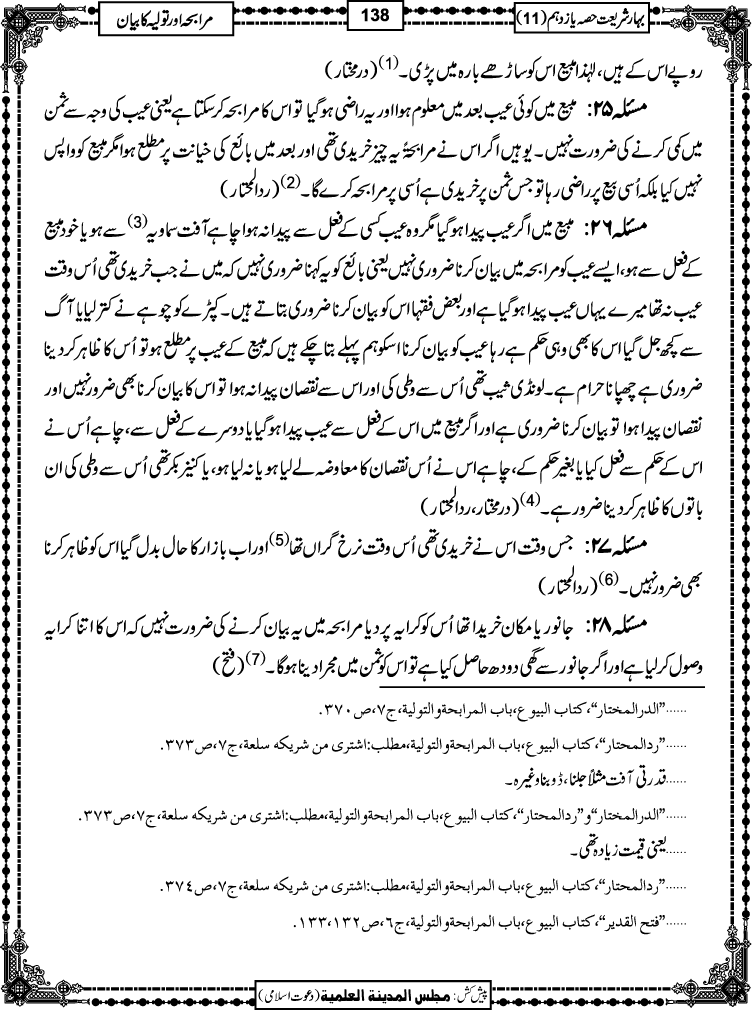 بہار شریعت حصہ یازدہم (11)
138
مرابحہ اور تولیہ کا بیان
روپے اس کے ہیں، لہٰذا مبیع اس کو ساڑھے بارہ میں پڑی۔(1) (درمختار)
مسئلہ ۲۵: مبیع میں کوئی عیب بعد میں معلوم ہوا اور یہ راضی ہوگیا تو اس کا مرابحہ کرسکتا ہے یعنی عیب کی وجہ سے ثمن
میں کمی کرنے کی ضرورت نہیں۔ یوہیں اگر اس نے مرابحۃً یہ چیز خریدی تھی اور بعد میں بائع کی خیانت پر مطلع ہوا مگر مبیع کو واپس
نہیں کیا بلکہ اُسی بیع پر راضی رہا تو جس ثمن پر خریدی ہے اُسی پر مرابحہ کرے گا۔(2) (ردالمحتار)
مسئلہ ۲۶: مبیع میں اگر عیب پیدا ہوگیا مگر وہ عیب کسی کے فعل سے پیدا نہ ہوا چاہے آفت سماویہ(3) سے ہو یا خود مبیع
کے فعل سے ہو، ایسے عیب کو مرابحہ میں بیان کرنا ضروری نہیں یعنی بائع کو یہ کہنا ضروری نہیں کہ میں نے جب خریدی تھی اُس وقت
عیب نہ تھا میرے یہاں عیب پیدا ہوگیا ہے اور بعض فقہا اس کو بیان کرنا ضروری بتاتے ہیں۔ کپڑے کو چوہے نے کتر لیا یا آگ
سے کچھ جل گیا اس کا بھی وہی حکم ہے رہا عیب کو بیان کرنا اسکو ہم پہلے بتا چکے ہیں کہ مبیع کے عیب پر مطلع ہو تو اُس کا ظاہر کردینا
ضروری ہے چھپانا حرام ہے۔ لونڈی ثیب تھی اُس سے وطی کی اور اس سے نقصان پیدا نہ ہوا تو اس کا بیان کرنا بھی ضرور نہیں اور
نقصان پیدا ہوا تو بیان کرنا ضروری ہے اور اگر مبیع میں اس کے فعل سے عیب پیدا ہوگیا یا دوسرے کے فعل سے، چاہے اُس نے
اس کے حکم سے فعل کیا یا بغیر حکم کے، چاہے اس نے اُس نقصان کا معاوضہ لے لیا ہو یا نہ لیا ہو، یا کنیز بکر تھی اُس سے وطی کی ان
باتوں کا ظاہر کردینا ضرور ہے۔(4) (درمختار، ردالمحتار)
مسئلہ ۲۷: جس وقت اس نے خریدی تھی اُس وقت نرخ گراں تھا(5) اور اب بازار کا حال بدل گیا اس کو ظاہر کرنا
بھی ضرور نہیں۔(6) (ردالمحتار)
مسئلہ ۲۸: جانور یا مکان خریدا تھا اُس کو کرایہ پر دیا مرابحہ میں یہ بیان کرنے کی ضرورت نہیں کہ اس کا اتنا کرایہ
وصول کرلیا ہے اور اگر جانور سے گھی دودھ حاصل کیا ہے تو اس کو ثمن میں مجرا دینا ہوگا۔(7) (فتح)
......”الدرالمختار“، کتاب البیوع، باب المرابحۃ والتولیۃ، ج۷، ص۳۷۰.
......”ردالمحتار“، کتاب البیوع، باب المرابحۃ والتولیۃ، مطلب: اشتری من شریکہ سلعۃ، ج۷، ص۳۷۳.
......قدرتی آفت مثلاً جلنا، ڈوبنا وغیرہ۔
......”الدرالمختار“ و ”ردالمحتار“، کتاب البیوع، باب المرابحۃ والتولیۃ، مطلب: اشتری من شریکہ سلعۃ، ج۷، ص۳۷۳.
......یعنی قیمت زیادہ تھی۔
......”ردالمحتار“، کتاب البیوع، باب المرابحۃ والتولیۃ، مطلب: اشتری من شریکہ سلعۃ، ج۷، ص۳۷٤.
......”فتح القدیر“، کتاب البیوع، باب المرابحۃ والتولیۃ، ج٦، ص۱۳۲، ۱۳۳.
پیش کش: مجلس المدینۃ العلمیۃ (دعوت اسلامی)